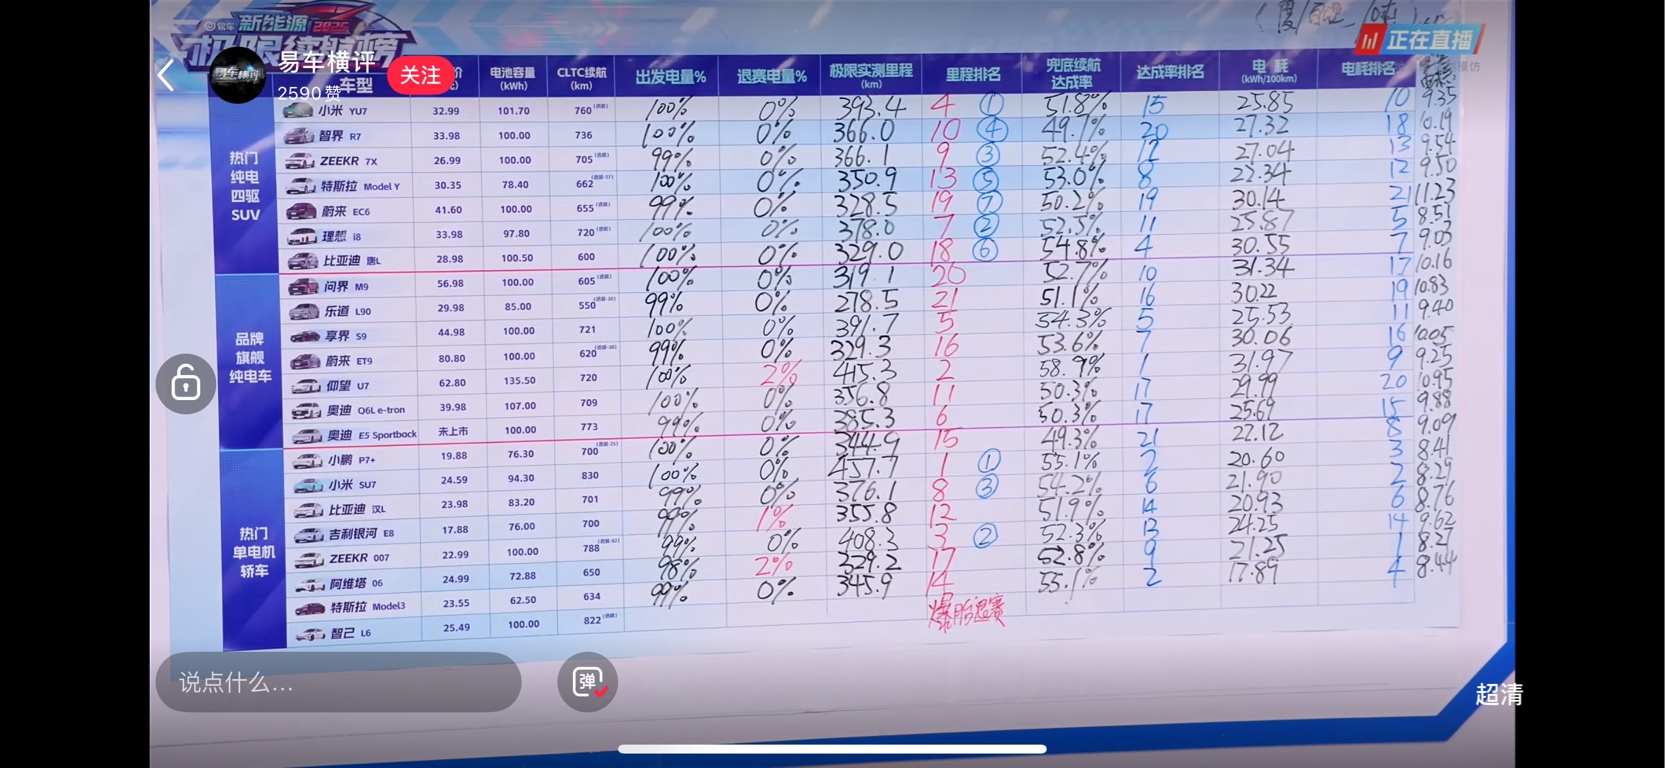 易车 新能源 2025
极限续航榜
正在直播
易车横评
2590赞
关注
车型 电池容量(kWh) CLTC续航(km) 出发电量% 退赛电量% 极限实测里程(km) 里程排名 兜底续航达成率 达成率排名 电耗(kWh/100km) 电耗排名
热门纯电四驱SUV
小米 YU7 32.99 101.70 760 100% 0% 393.4 4 ① 51.8% 15 25.85 10 9.35
智界 R7 33.98 100.00 736 100% 0% 366.0 10 ④ 49.7% 20 27.32 18 10.19
ZEEKR 7X 26.99 100.00 705 99% 0% 366.1 9 ③ 52.4% 12 27.04 13 9.54
特斯拉 Model Y 30.35 78.40 662 100% 0% 350.9 13 ⑤ 53.0% 8 22.34 12 9.50
蔚来 EC6 41.60 100.00 655 99% 0% 328.5 19 ⑦ 50.2% 19 30.14 21 11.23
理想 i8 33.98 97.80 720 100% 0% 378.0 7 ② 52.5% 11 25.87 5 8.51
比亚迪 唐L 28.98 100.50 600 100% 0% 329.0 18 ⑥ 54.8% 4 30.55 7 9.03
品牌旗舰纯电车
问界 M9 56.98 100.00 605 100% 0% 319.1 20 52.7% 10 31.34 17 10.16
乐道 L90 29.98 85.00 550 99% 0% 278.5 21 51.1% 16 30.22 19 10.83
享界 S9 44.98 100.00 721 100% 0% 391.7 5 54.3% 5 25.53 11 9.40
蔚来 ET9 80.80 100.00 620 99% 0% 329.3 16 53.6% 7 30.06 16 10.05
仰望 U7 62.80 135.50 720 100% 2% 415.3 2 58.9% 1 31.97 9 9.25
奥迪 Q6L e-tron 39.98 107.00 709 100% 0% 356.8 11 50.3% 17 29.99 20 10.95
奥迪 E5 Sportback 未上市 100.00 773 99% 0% 385.3 6 50.3% 17 25.69 15 9.88
热门单电机轿车
小鹏 P7+ 19.88 76.30 700 100% 0% 344.9 15 49.3% 21 22.12 8 9.09
小米 SU7 24.59 94.30 830 100% 0% 457.7 1 ① 55.1% 2 20.60 3 8.41
比亚迪 汉L 23.98 83.20 701 99% 0% 376.1 8 ③ 54.2% 6 21.90 2 8.29
吉利银河 E8 17.88 76.00 700 99% 1% 355.8 12 51.9% 14 20.93 6 8.76
ZEEKR 007 22.99 100.00 788 99% 0% 408.3 3 ② 52.3% 13 24.25 14 9.62
阿维塔 06 24.99 72.88 650 98% 2% 329.2 17 52.8% 9 21.25 1 8.27
特斯拉 Model3 23.55 62.50 634 99% 0% 345.9 14 55.1% 2 17.89 4 8.44
智己 L6 25.49 100.00 822 爆胎退赛
说点什么...
弹
超清